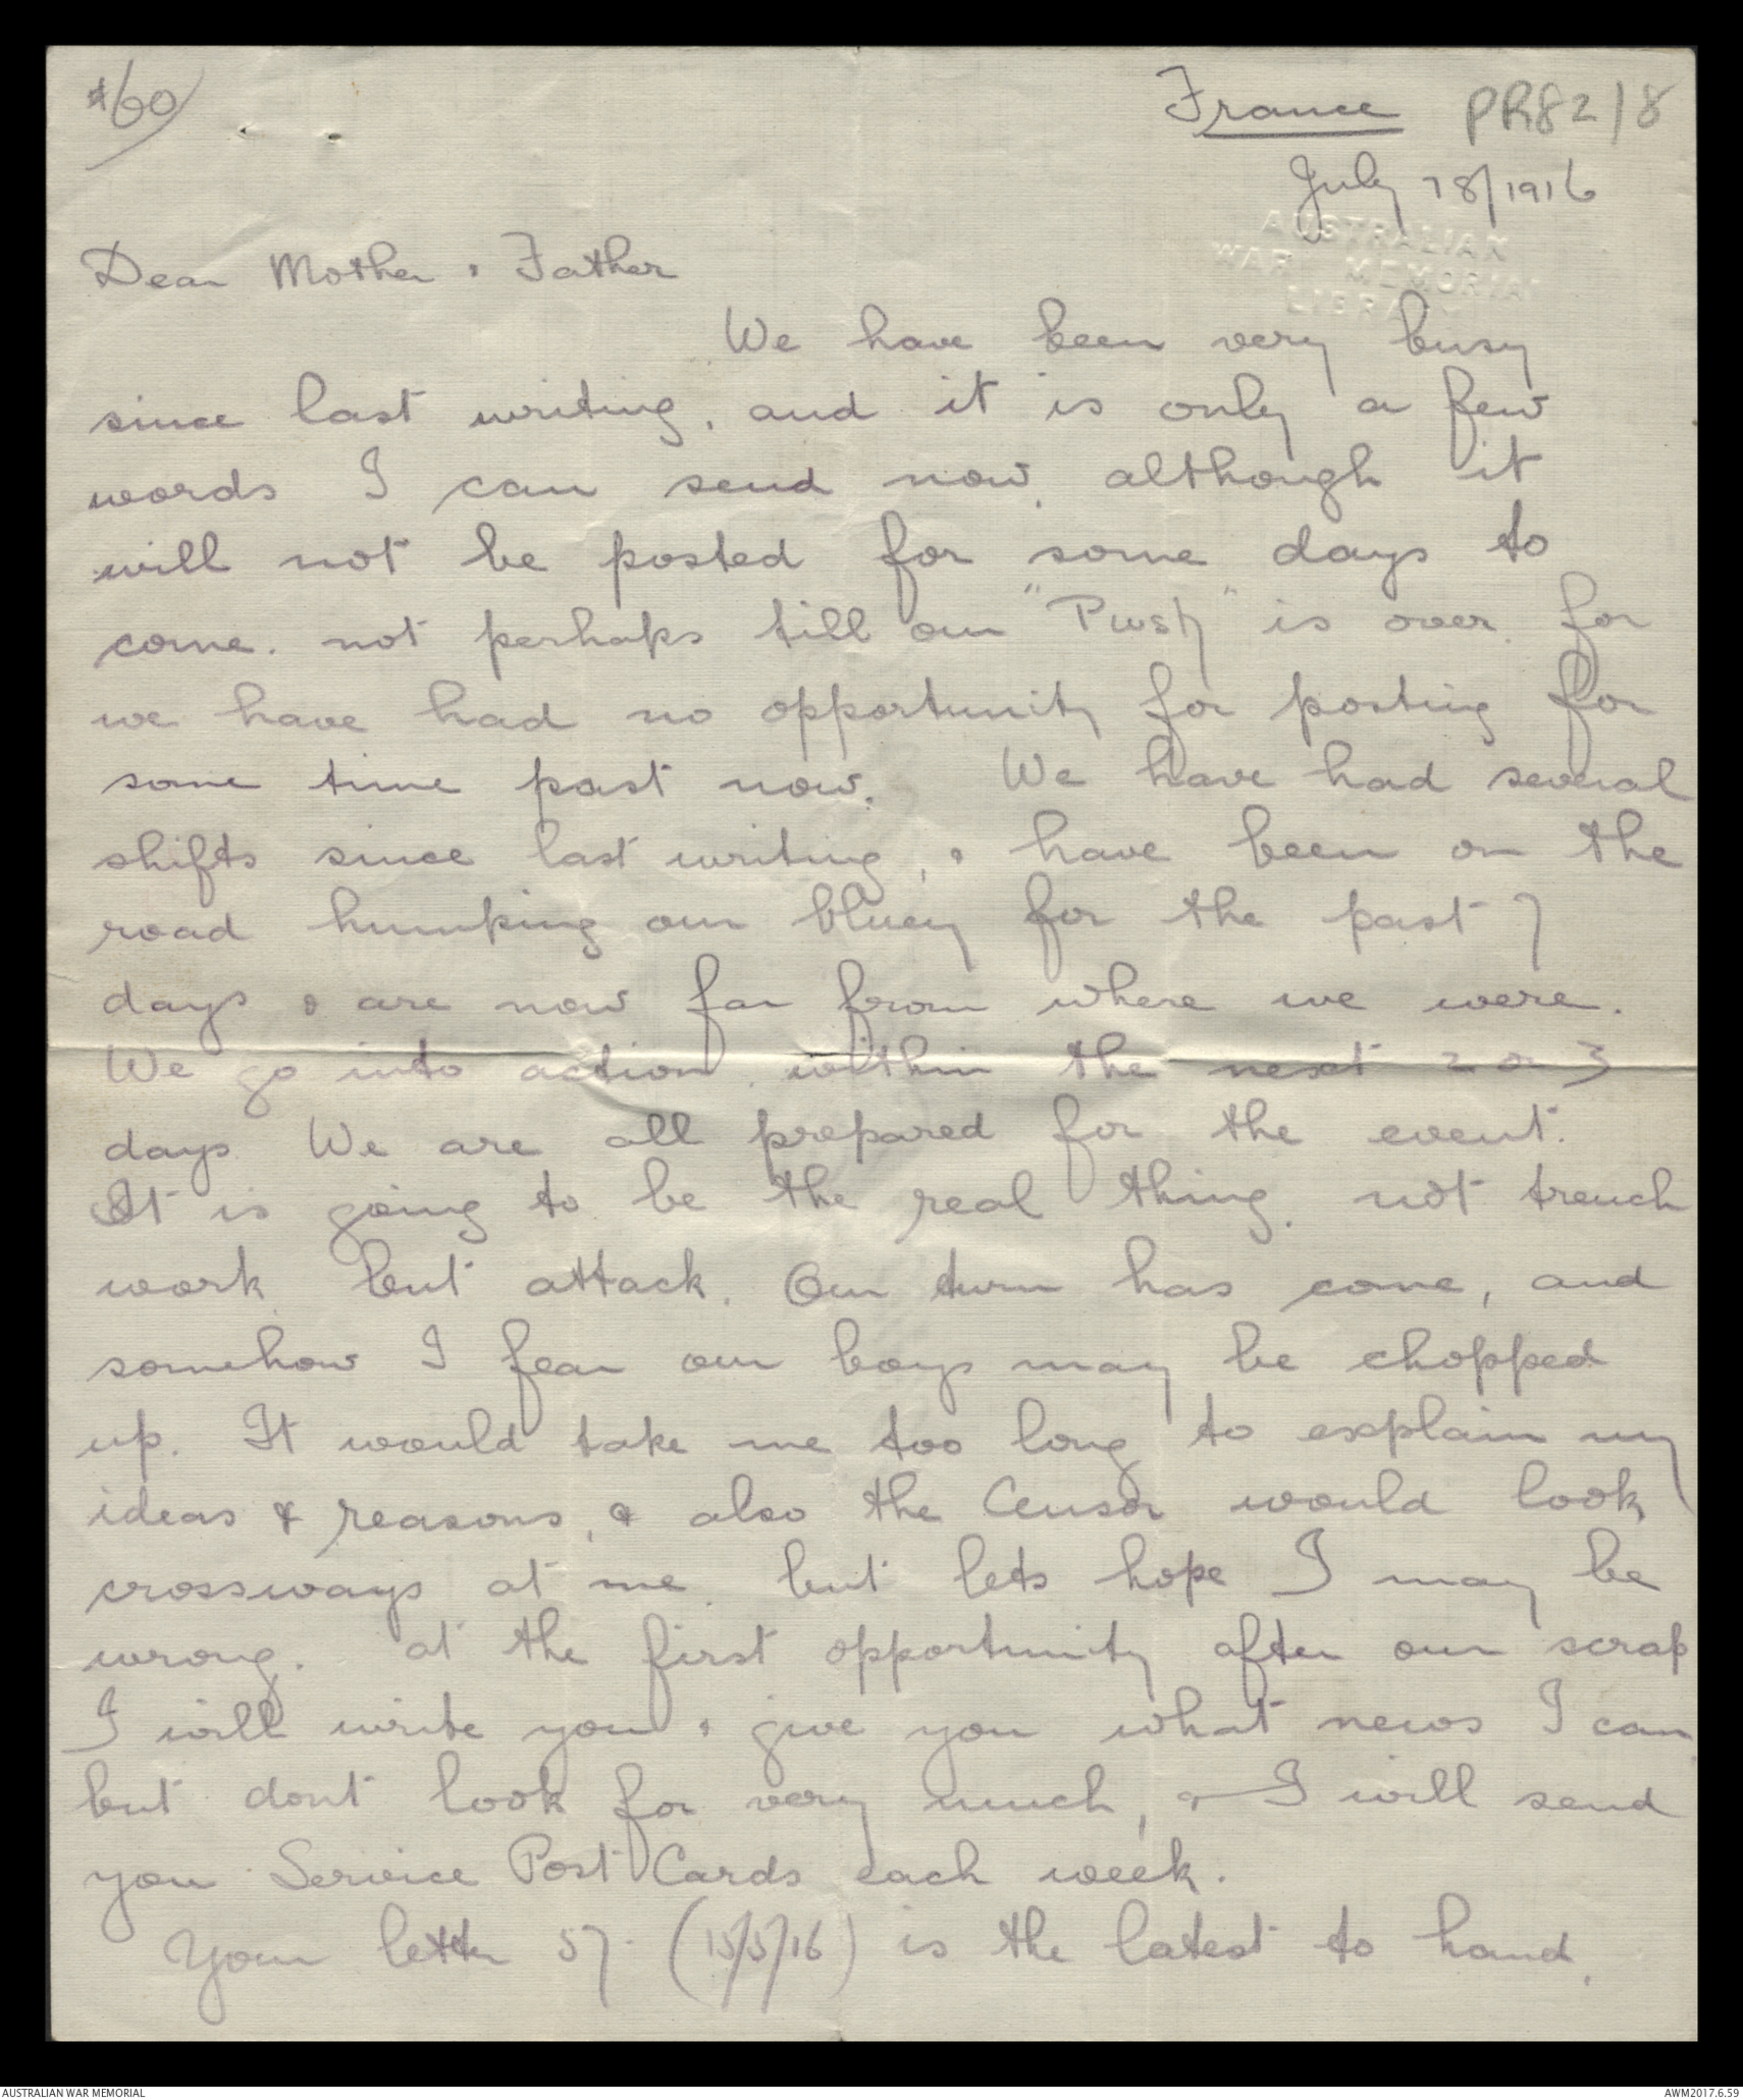 #60
France PR82/8
July 18/1916
AUSTRALIAN
WAR MEMORIAL
LIBRARY
Dear Mother & Father
We have been very busy
since last writing, and it is only a few
words I can send now, although it
will not be posted for some days to
come. not perhaps till our "Push" is over. for
we have had no opportunity for posting for
some time past now. We have had several
shifts since last writing, & have been on the
road humping our bluey for the past 7
days & are now far from where we were.
We go into action within the next 2 or 3
days. We are all prepared for the event.
It is going to be the real thing. not trench
work but attack. Our turn has come, and
somehow I fear our boys may be chopped
up. It would take me too long to explain my
ideas & reasons, & also the Censor would look
crossways at me. but lets hope I may be
wrong. at the first opportunity after our scrap
I will write you & give you what news I can
but dont look for very much, & I will send
you Service Post Cards each week.
Your letter 57. (15/5/16) is the latest to hand.
AUSTRALIAN WAR MEMORIAL AWM2017.6.59